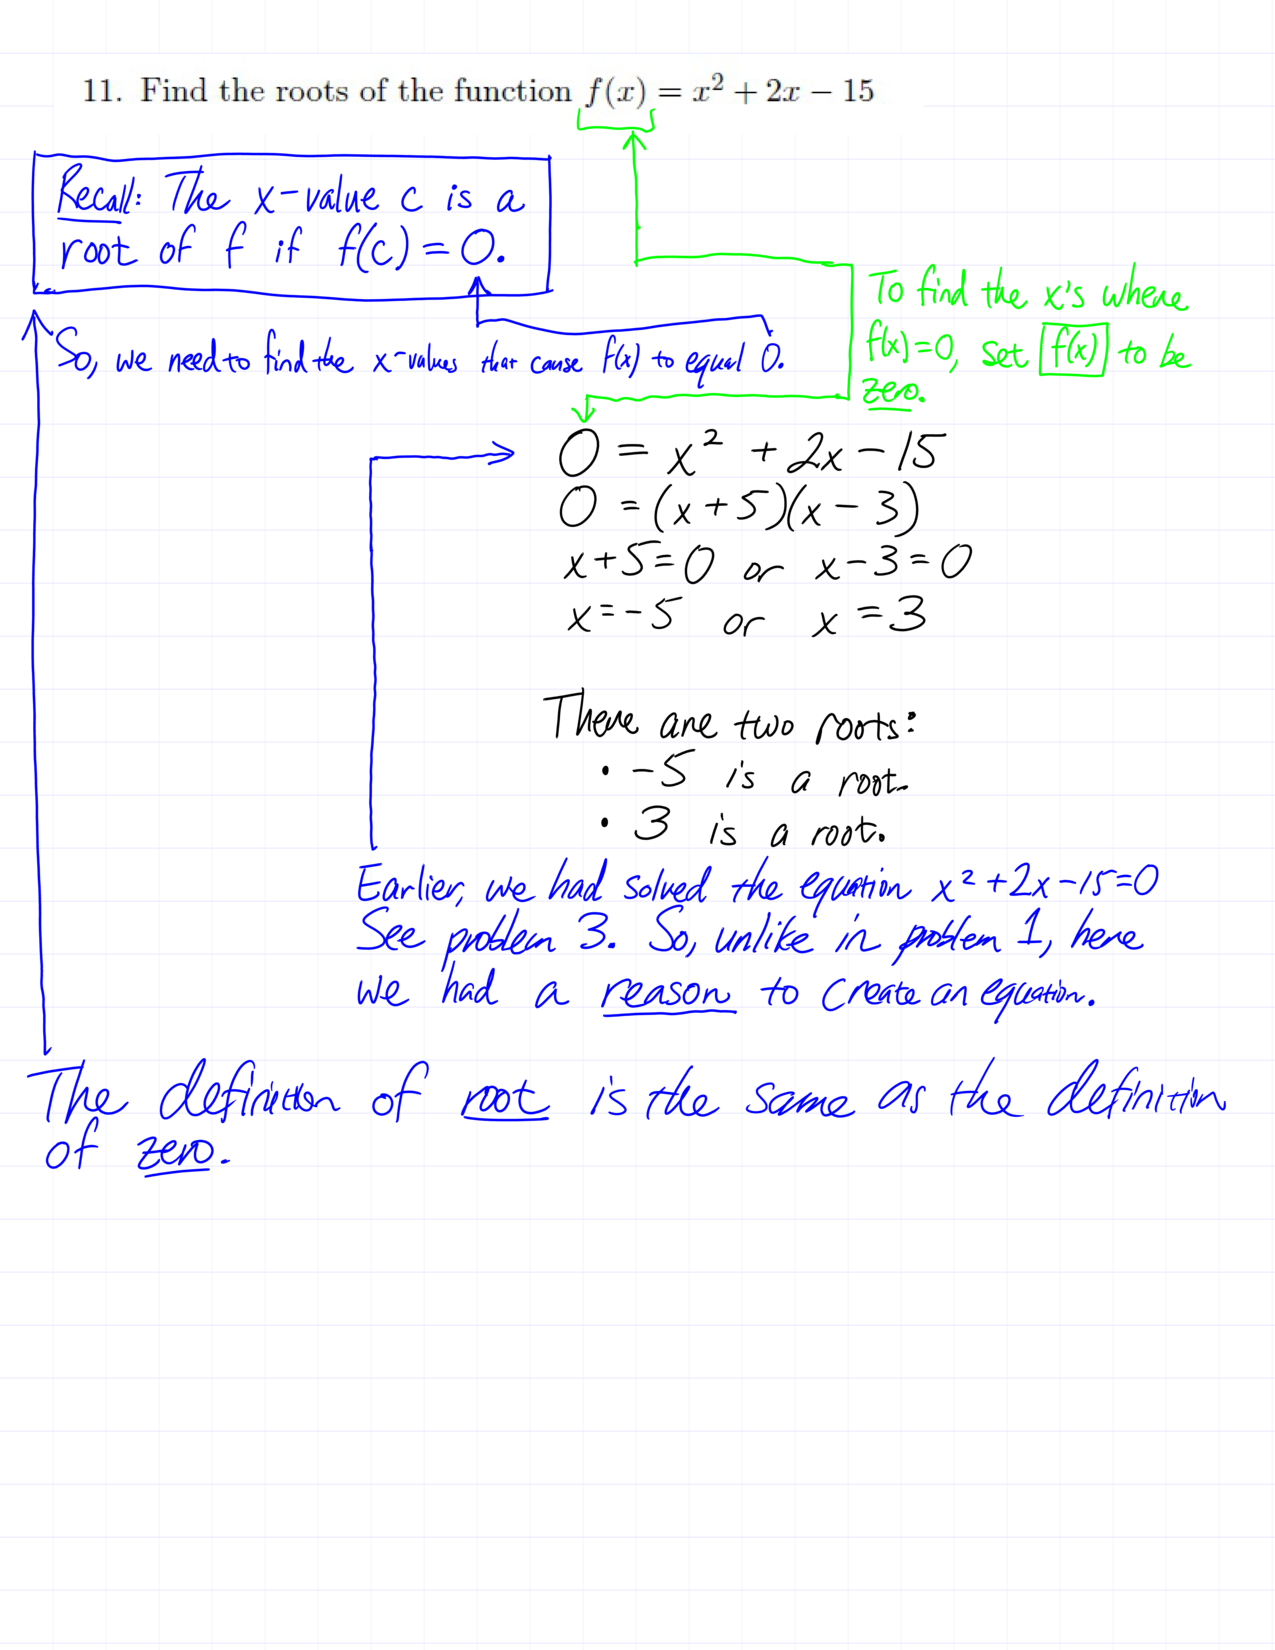 11. Find the roots of the function f(x) = x² + 2x − 15
Recall: The x-value c is a
root of f if f(c) = 0.
To find the x's where
f(x)=0, set f(x) to be
zero.
So, we need to find the x-values that cause f(x) to equal 0.
0 = x² + 2x − 15
0 = (x+5)(x−3)
x+5=0 or x−3=0
x=−5 or x=3
There are two roots:
• −5 is a root.
• 3 is a root.
Earlier, we had solved the equation x²+2x−15=0
See problem 3. So, unlike in problem 1, here
we had a reason to create an equation.
The definition of root is the same as the definition
of zero.